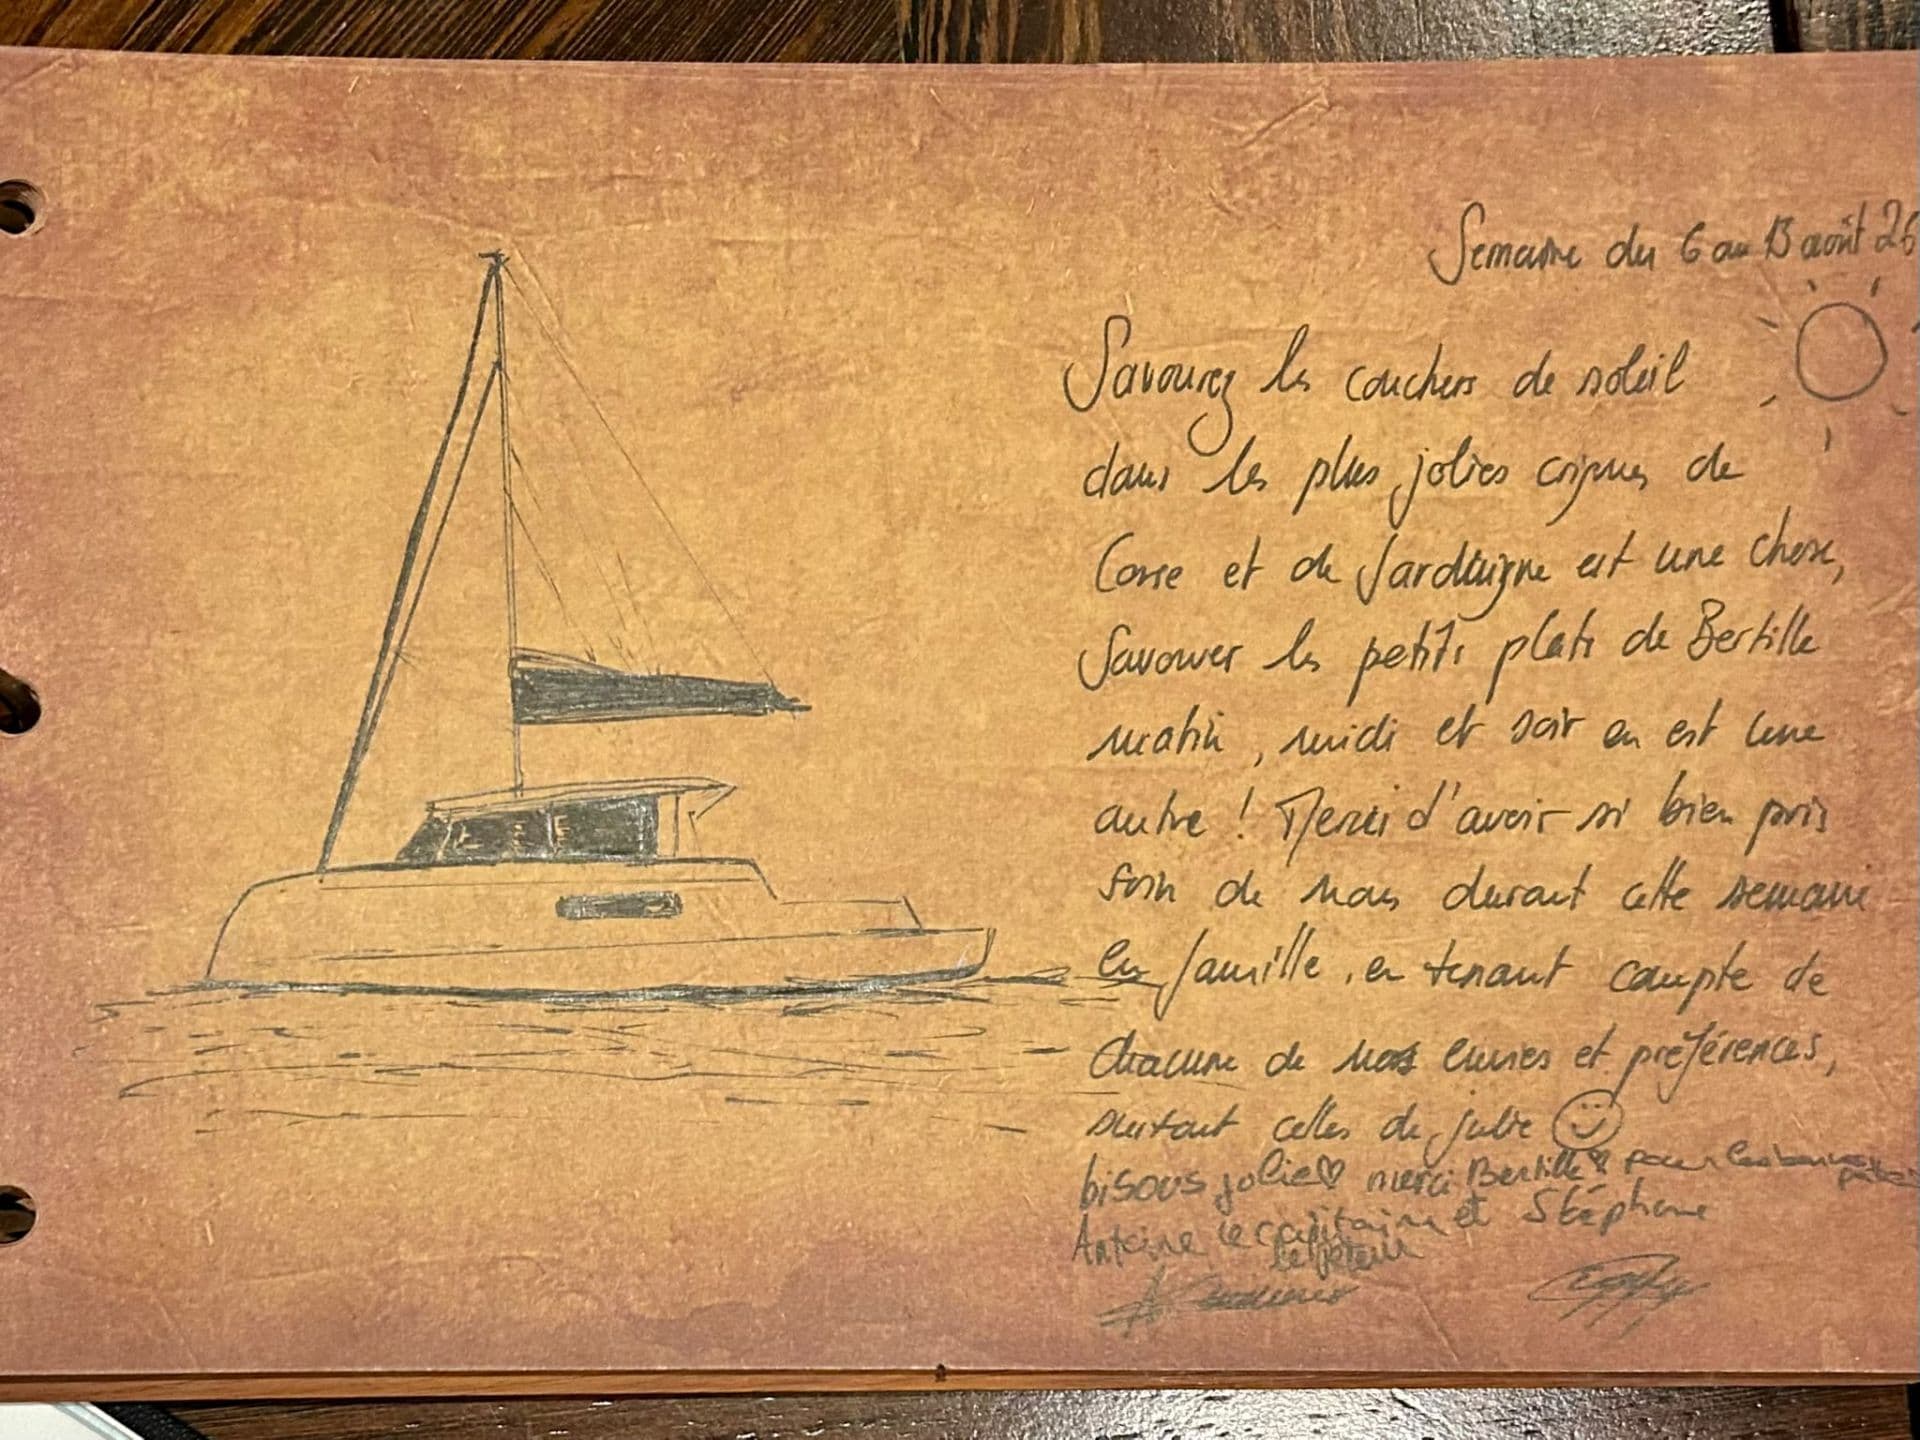 Semaine du 6 au 13 août 26
Savourez les couchers de soleil
dans les plus jolies criques de
Corse et de Sardaigne est une chose,
Savourer les petits plats de Bertille
matin, midi et soir en est une
autre ! Merci d'avoir si bien pris
soin de nous durant cette semaine
en famille, en tenant compte de
chacune de nos envies et préférences,
surtout celles de julie
bisous jolie merci Bertille pour les
Antoine le capitaine et Stéphane